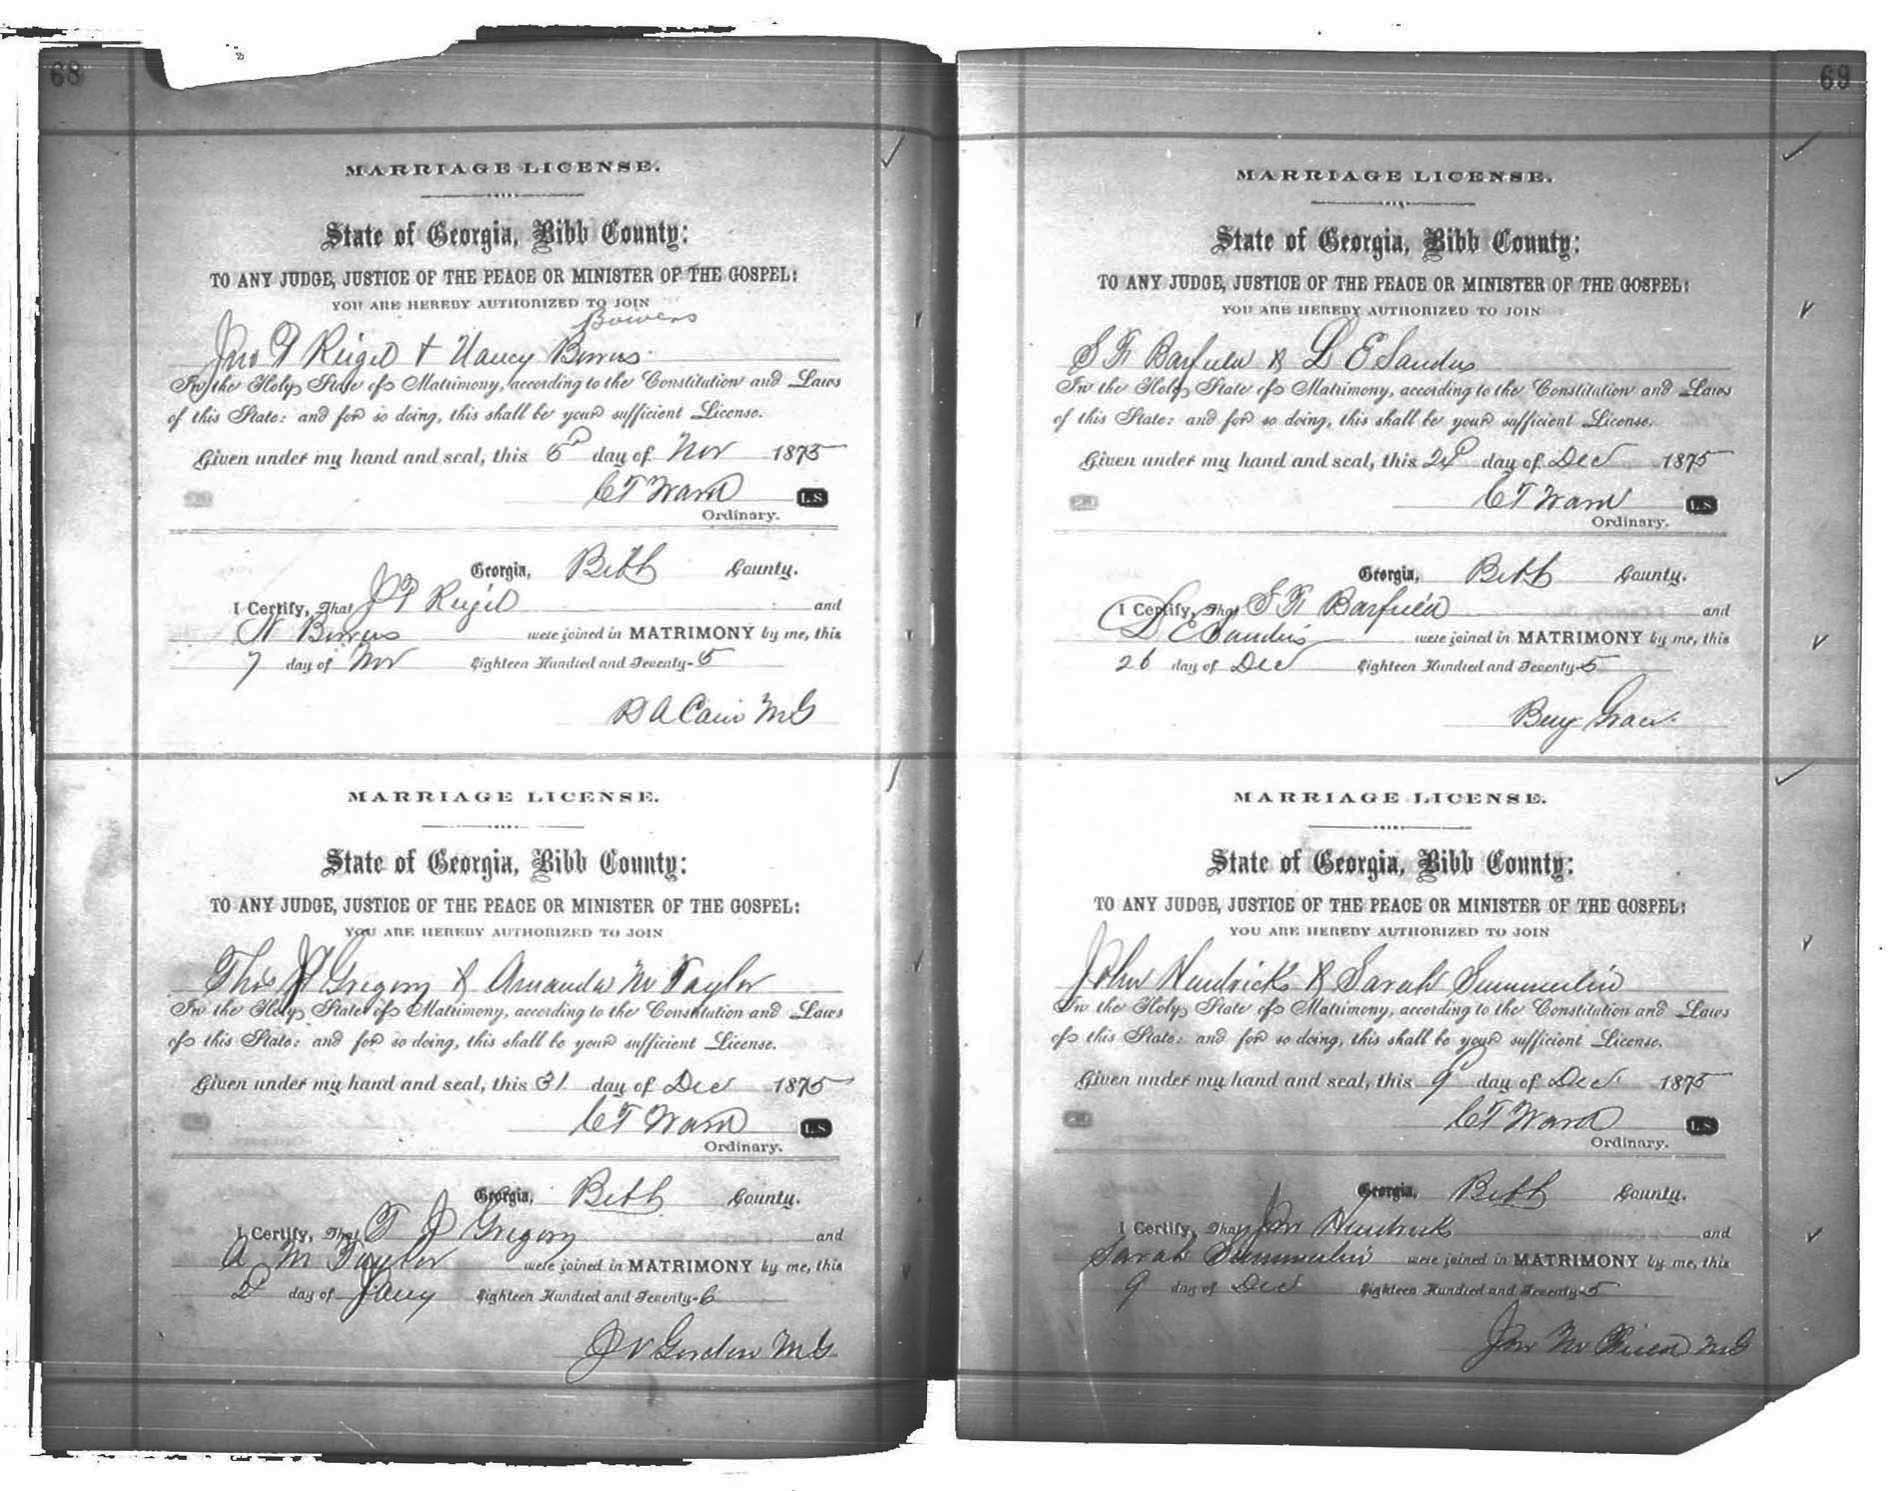 68
MARRIAGE LICENSE.
State of Georgia, Bibb County:
TO ANY JUDGE, JUSTICE OF THE PEACE OR MINISTER OF THE GOSPEL:
YOU ARE HEREBY AUTHORIZED TO JOIN
Bowers
Jno T Reigel & Nancy Bowers
In the Holy State of Matrimony, according to the Constitution and Laws
of this State: and for so doing, this shall be your sufficient License.
Given under my hand and seal, this 6th day of Nov 1875
C T Ward L.S.
Ordinary.
Georgia, Bibb County.
I Certify, That J T Reigel and
N Bowers were joined in MATRIMONY by me, this
7 day of Nov Eighteen Hundred and Seventy-5
B A Cain MG
MARRIAGE LICENSE.
State of Georgia, Bibb County:
TO ANY JUDGE, JUSTICE OF THE PEACE OR MINISTER OF THE GOSPEL:
YOU ARE HEREBY AUTHORIZED TO JOIN
Thos J Gregory & Amanda M Taylor
In the Holy State of Matrimony, according to the Constitution and Laws
of this State: and for so doing, this shall be your sufficient License.
Given under my hand and seal, this 31 day of Dec 1875
C T Ward L.S.
Ordinary.
Georgia, Bibb County.
I Certify, That T J Gregory and
A M Taylor were joined in MATRIMONY by me, this
2d day of Jany Eighteen Hundred and Seventy-6
J V Gordon MG
69
MARRIAGE LICENSE.
State of Georgia, Bibb County:
TO ANY JUDGE, JUSTICE OF THE PEACE OR MINISTER OF THE GOSPEL:
YOU ARE HEREBY AUTHORIZED TO JOIN
S F Barfield & L E Sanders
In the Holy State of Matrimony, according to the Constitution and Laws
of this State: and for so doing, this shall be your sufficient License.
Given under my hand and seal, this day of Dec 1875
C T Ward L.S.
Ordinary.
Georgia, Bibb County.
I Certify, That S F Barfield and
L E Sanders were joined in MATRIMONY by me, this
26 day of Dec Eighteen Hundred and Seventy-5
Benj
MARRIAGE LICENSE.
State of Georgia, Bibb County:
TO ANY JUDGE, JUSTICE OF THE PEACE OR MINISTER OF THE GOSPEL:
YOU ARE HEREBY AUTHORIZED TO JOIN
John Hendrick & Sarah Summerlin
In the Holy State of Matrimony, according to the Constitution and Laws
of this State: and for so doing, this shall be your sufficient License.
Given under my hand and seal, this 9 day of Dec 1875
C T Ward L.S.
Ordinary.
Georgia, Bibb County.
I Certify, That Jno Hendrick and
Sarah Summerlin were joined in MATRIMONY by me, this
9 day of Dec Eighteen Hundred and Seventy-5
Jno MG